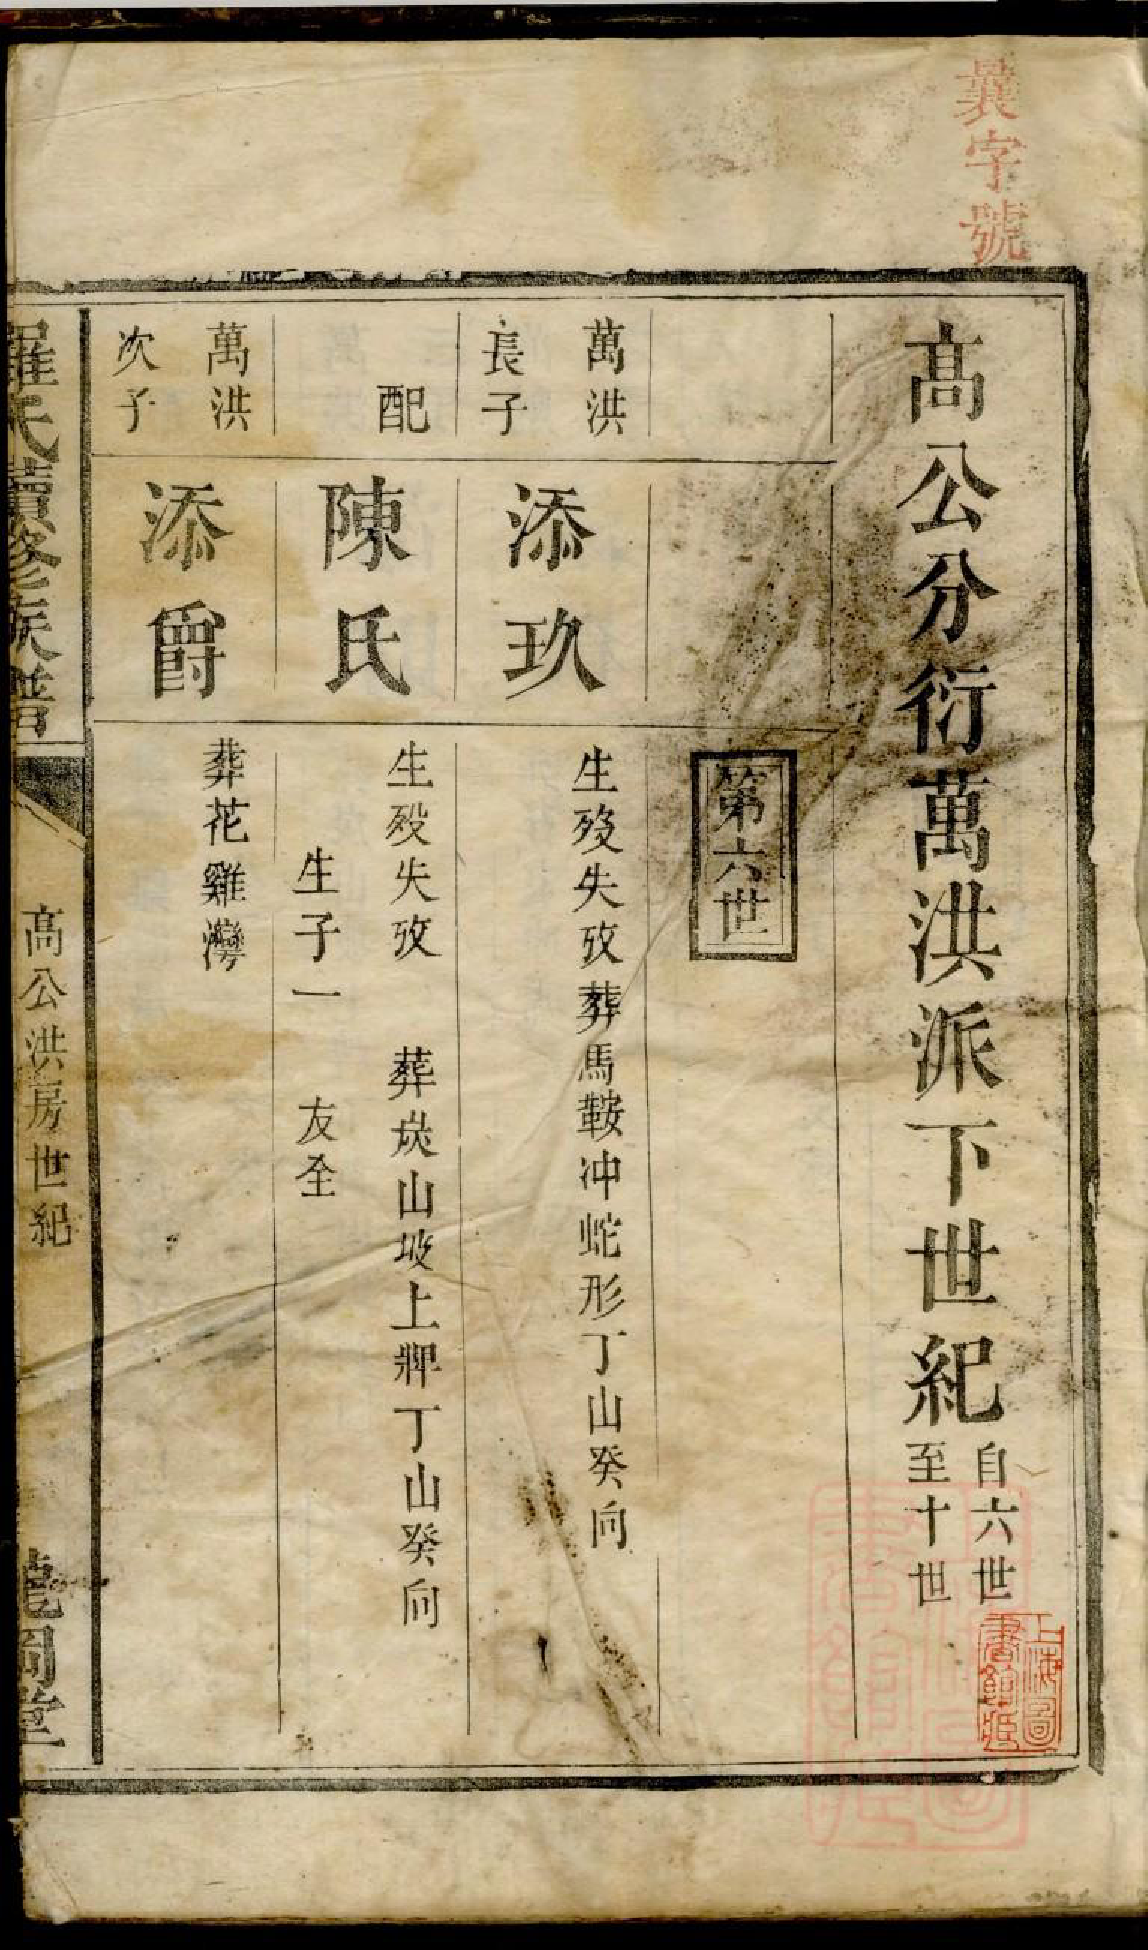 曩字號
高公分衍萬洪派下世紀
自六世
至十世
第六世
萬洪
長子
添玖
生歿失攷葬馬鞍冲蛇形丁山癸向
配
陳氏
生歿失攷 葬炭山坡上牌丁山癸向
生子一 友全
萬洪
次子
添爵
葬花雞灣
羅氏續修族譜
高公洪房世紀
上海圖
書館藏